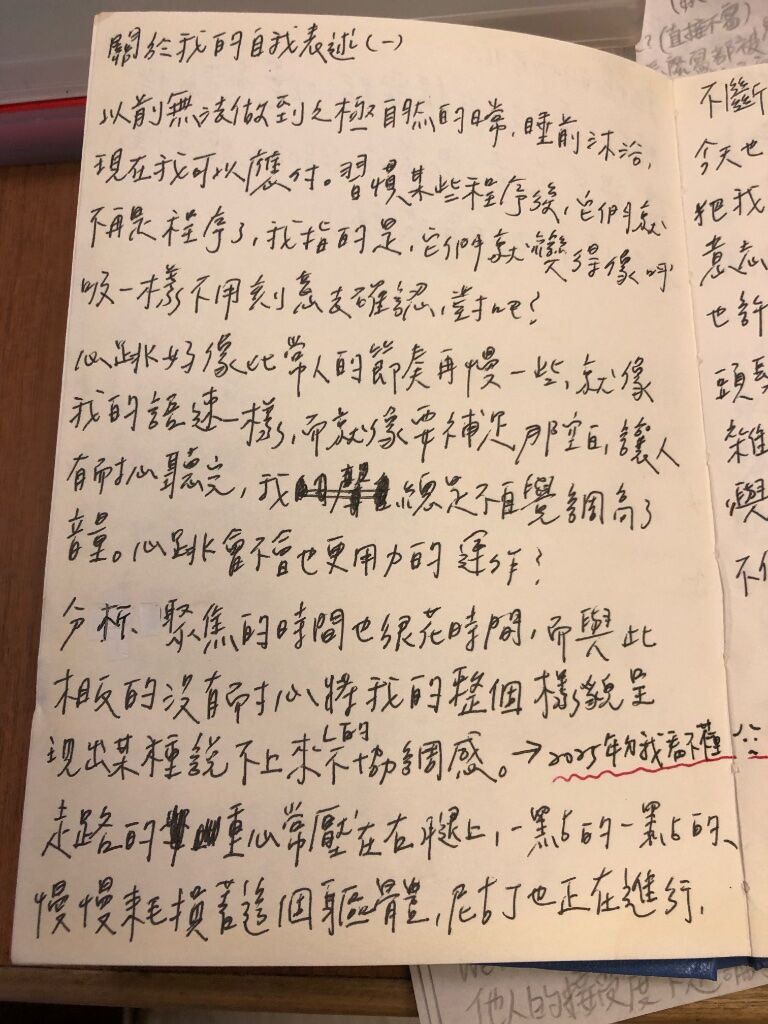 關於我的自我表述(一)
以前無法做到之極自然的日常,睡前沐浴,
現在我可以應付。習慣某些程序後,它們就
不再是程序了,我指的是,它們就變得像呼
吸一樣不用刻意去確認,對吧?
心跳好像比常人的節奏再慢一些,就像
我的語速一樣,而就像要補足那空白,讓人
有耐心聽完,我總是不自覺調高了
音量。心跳會不會也更用力的運作?
分析、聚焦的時間也很花時間,而與此
相反的沒有耐心將我的整個樣貌呈
現出某種說不上來的不協調感。→2025年的我看不懂
走路的重心常壓在右腿上,一點點的一點點的、
慢慢耗損著這個軀體,尼古丁也正在進行,
不斷
今天也
把我
意志
也許
頭髮
雜
與
不
(直接不寫)
他人的接受度